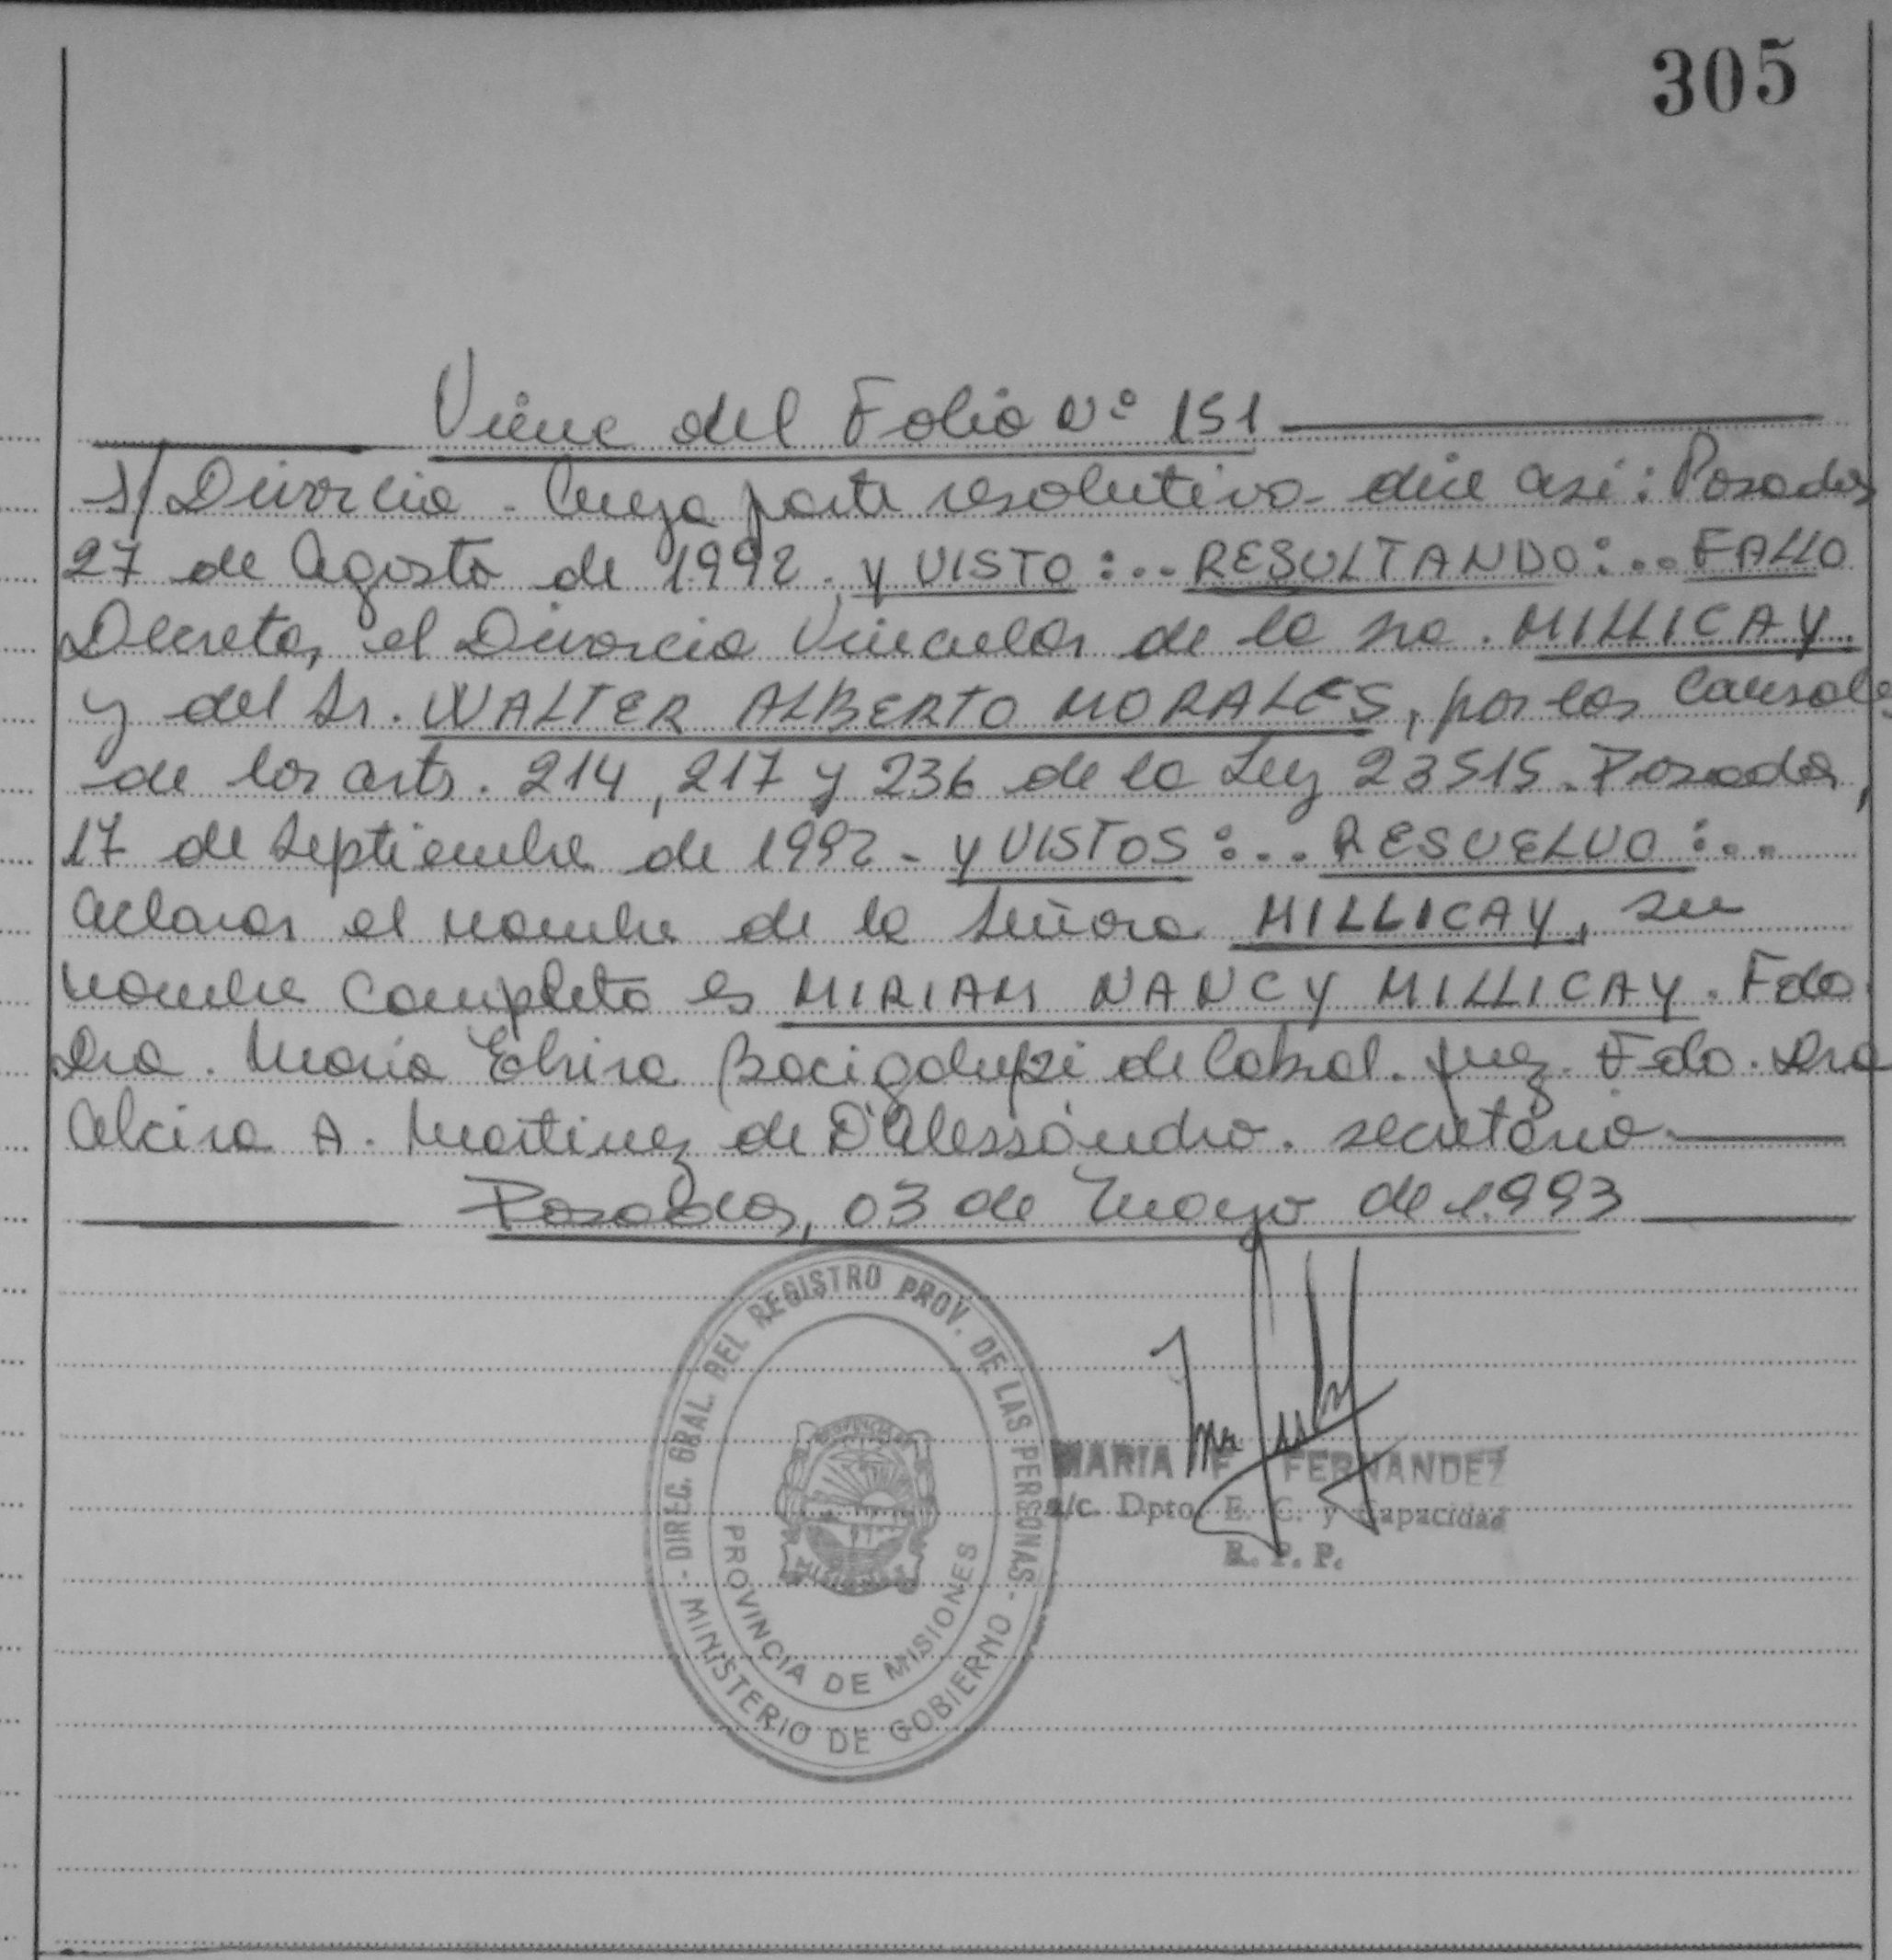 305
Viene del Folio Nº 151
s/ Divorcio - Cuya parte resolutiva dice asi: Posadas
27 de Agosto de 1992. y VISTO:.. RESULTANDO:.. FALLO
Decretar el Divorcio Vincular de la sra. MILLICAY
y del Sr. WALTER ALBERTO MORALES, por las causales
de los arts. 214, 217 y 236 de la Ley 23515. Posadas,
17 de Septiembre de 1992 - y VISTOS:... RESUELVO:...
Aclarar el nombre de la Señora MILLICAY, su
nombre completo es MIRIAM NANCY MILLICAY. Fdo.
Dra. Maria Elvira Bacigalupi de Cabral. Juez. Fdo. Dra
Alcira A. Martinez de D'Alessandro. secretario.
Posadas, 03 de Mayo de 1.993
- DIREC. GRAL. DEL REGISTRO PROV. DE LAS PERSONAS -
MINISTERIO DE GOBIERNO
PROVINCIA DE MISIONES
MARIA F. FERNANDEZ
a/c. Dpto. E. C. y Capacidad
R. P. P.